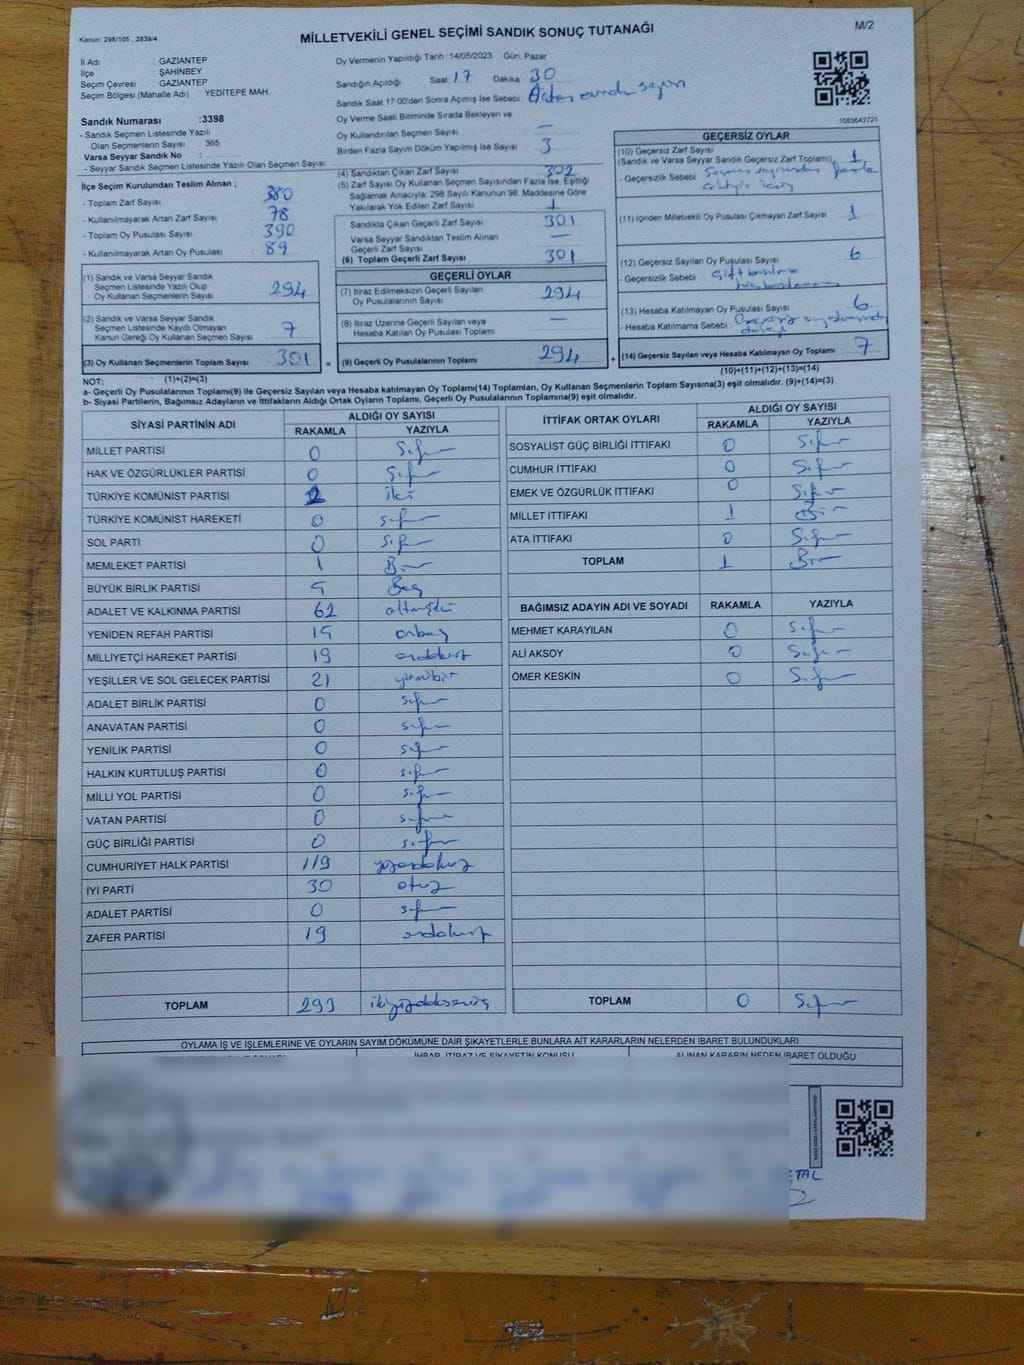 Kanun: 298/105 , 2839/4
MİLLETVEKİLİ GENEL SEÇİMİ SANDIK SONUÇ TUTANAĞI
M/2
İl Adı GAZİANTEP
İlçe ŞAHİNBEY
Seçim Çevresi GAZİANTEP
Seçim Bölgesi (Mahalle Adı) : YEDİTEPE MAH.
Sandık Numarası :3398
- Sandık Seçmen Listesinde Yazılı
Olan Seçmenlerin Sayısı 365
Varsa Seyyar Sandık No :
- Seyyar Sandık Seçmen Listesinde Yazılı Olan Seçmen Sayısı
İlçe Seçim Kurulundan Teslim Alınan ;
- Toplam Zarf Sayısı 380
- Kullanılmayarak Artan Zarf Sayısı 78
- Toplam Oy Pusulası Sayısı 390
- Kullanılmayarak Artan Oy Pusulası 89
(1) Sandık ve Varsa Seyyar Sandık
Seçmen Listesinde Yazılı Olup
Oy Kullanan Seçmenlerin Sayısı 294
(2) Sandık ve Varsa Seyyar Sandık
Seçmen Listesinde Kayıtlı Olmayan
Kanun Gereği Oy Kullanan Seçmen Sayısı 7
(3) Oy Kullanan Seçmenlerin Toplam Sayısı 301
Oy Vermenin Yapıldığı Tarih :14/05/2023 Gün: Pazar
Sandığın Açıldığı Saat: 17 Dakika 30
Sandık Saat 17.00'den Sonra Açılmış İse Sebebi
Oy Verme Saati Bitiminde Sırada Bekleyen ve
Oy Kullandırılan Seçmen Sayısı —
Birden Fazla Sayım Döküm Yapılmış İse Sayısı 3
(4) Sandıktan Çıkan Zarf Sayısı 302
(5) Zarf Sayısı Oy Kullanan Seçmen Sayısından Fazla İse, Eşitliği
Sağlamak Amacıyla; 298 Sayılı Kanunun 98. Maddesine Göre
Yakılarak Yok Edilen Zarf Sayısı 1
Sandıkla Çıkan Geçerli Zarf Sayısı 301
Varsa Seyyar Sandıktan Teslim Alınan
Geçerli Zarf Sayısı —
(6) Toplam Geçerli Zarf Sayısı 301
GEÇERLİ OYLAR
(7) İtiraz Edilmeksizin Geçerli Sayılan
Oy Pusulalarının Sayısı 294
(8) İtiraz Üzerine Geçerli Sayılan veya
Hesaba Katılan Oy Pusulası Toplamı —
= (9) Geçerli Oy Pusulalarının Toplamı 294 +
1083643721
GEÇERSİZ OYLAR
(10) Geçersiz Zarf Sayısı
(Sandık ve Varsa Seyyar Sandık Geçersiz Zarf Toplamı) 1
- Geçersizlik Sebebi
(11) İçinden Milletvekili Oy Pusulası Çıkmayan Zarf Sayısı 1
(12) Geçersiz Sayılan Oy Pusulası Sayısı 6
- Geçersizlik Sebebi
(13) Hesaba Katılmayan Oy Pusulası Sayısı 6
- Hesaba Katılmama Sebebi
(14) Geçersiz Sayılan veya Hesaba Katılmayan Oy Toplamı 7
NOT: (1)+(2)=(3) (10)+(11)+(12)+(13)=(14)
a- Geçerli Oy Pusulalarının Toplamı(9) ile Geçersiz Sayılan veya Hesaba katılmayan Oy Toplamı(14) Toplamları, Oy Kullanan Seçmenlerin Toplam Sayısına(3) eşit olmalıdır. (9)+(14)=(3)
b- Siyasi Partilerin, Bağımsız Adayların ve İttifakların Aldığı Ortak Oyların Toplamı, Geçerli Oy Pusulalarının Toplamına(9) eşit olmalıdır.
SİYASİ PARTİNİN ADI ALDIĞI OY SAYISI
RAKAMLA YAZIYLA
MİLLET PARTİSİ 0 Sıfır
HAK VE ÖZGÜRLÜKLER PARTİSİ 0 Sıfır
TÜRKİYE KOMÜNİST PARTİSİ 2 iki
TÜRKİYE KOMÜNİST HAREKETİ 0 sıfır
SOL PARTİ 0 sıfır
MEMLEKET PARTİSİ 1 Bir
BÜYÜK BİRLİK PARTİSİ 5 Beş
ADALET VE KALKINMA PARTİSİ 62 altmışiki
YENİDEN REFAH PARTİSİ 15 onbeş
MİLLİYETÇİ HAREKET PARTİSİ 19 ondokuz
YEŞİLLER VE SOL GELECEK PARTİSİ 21 yirmibir
ADALET BİRLİK PARTİSİ 0 sıfır
ANAVATAN PARTİSİ 0 sıfır
YENİLİK PARTİSİ 0 sıfır
HALKIN KURTULUŞ PARTİSİ 0 sıfır
MİLLİ YOL PARTİSİ 0 sıfır
VATAN PARTİSİ 0 sıfır
GÜÇ BİRLİĞİ PARTİSİ 0 sıfır
CUMHURİYET HALK PARTİSİ 119 yüzondokuz
İYİ PARTİ 30 otuz
ADALET PARTİSİ 0 sıfır
ZAFER PARTİSİ 19 ondokuz
TOPLAM 293 ikiyüzdoksanüç
İTTİFAK ORTAK OYLARI ALDIĞI OY SAYISI
RAKAMLA YAZIYLA
SOSYALİST GÜÇ BİRLİĞİ İTTİFAKI 0 Sıfır
CUMHUR İTTİFAKI 0 Sıfır
EMEK VE ÖZGÜRLÜK İTTİFAKI 0 Sıfır
MİLLET İTTİFAKI 1 Bir
ATA İTTİFAKI 0 Sıfır
TOPLAM 1 Bir
BAĞIMSIZ ADAYIN ADI VE SOYADI RAKAMLA YAZIYLA
MEHMET KARAYILAN 0 Sıfır
ALİ AKSOY 0 Sıfır
ÖMER KESKİN 0 Sıfır
TOPLAM 0 Sıfır
OYLAMA İŞ VE İŞLEMLERİNE VE OYLARIN SAYIM DÖKÜMÜNE DAİR ŞİKAYETLERLE BUNLARA AİT KARARLARIN NELERDEN İBARET BULUNDUKLARI
İHBAR, İTİRAZ VE ŞİKAYETİN KONUSU ALINAN KARARIN NEDEN İBARET OLDUĞU